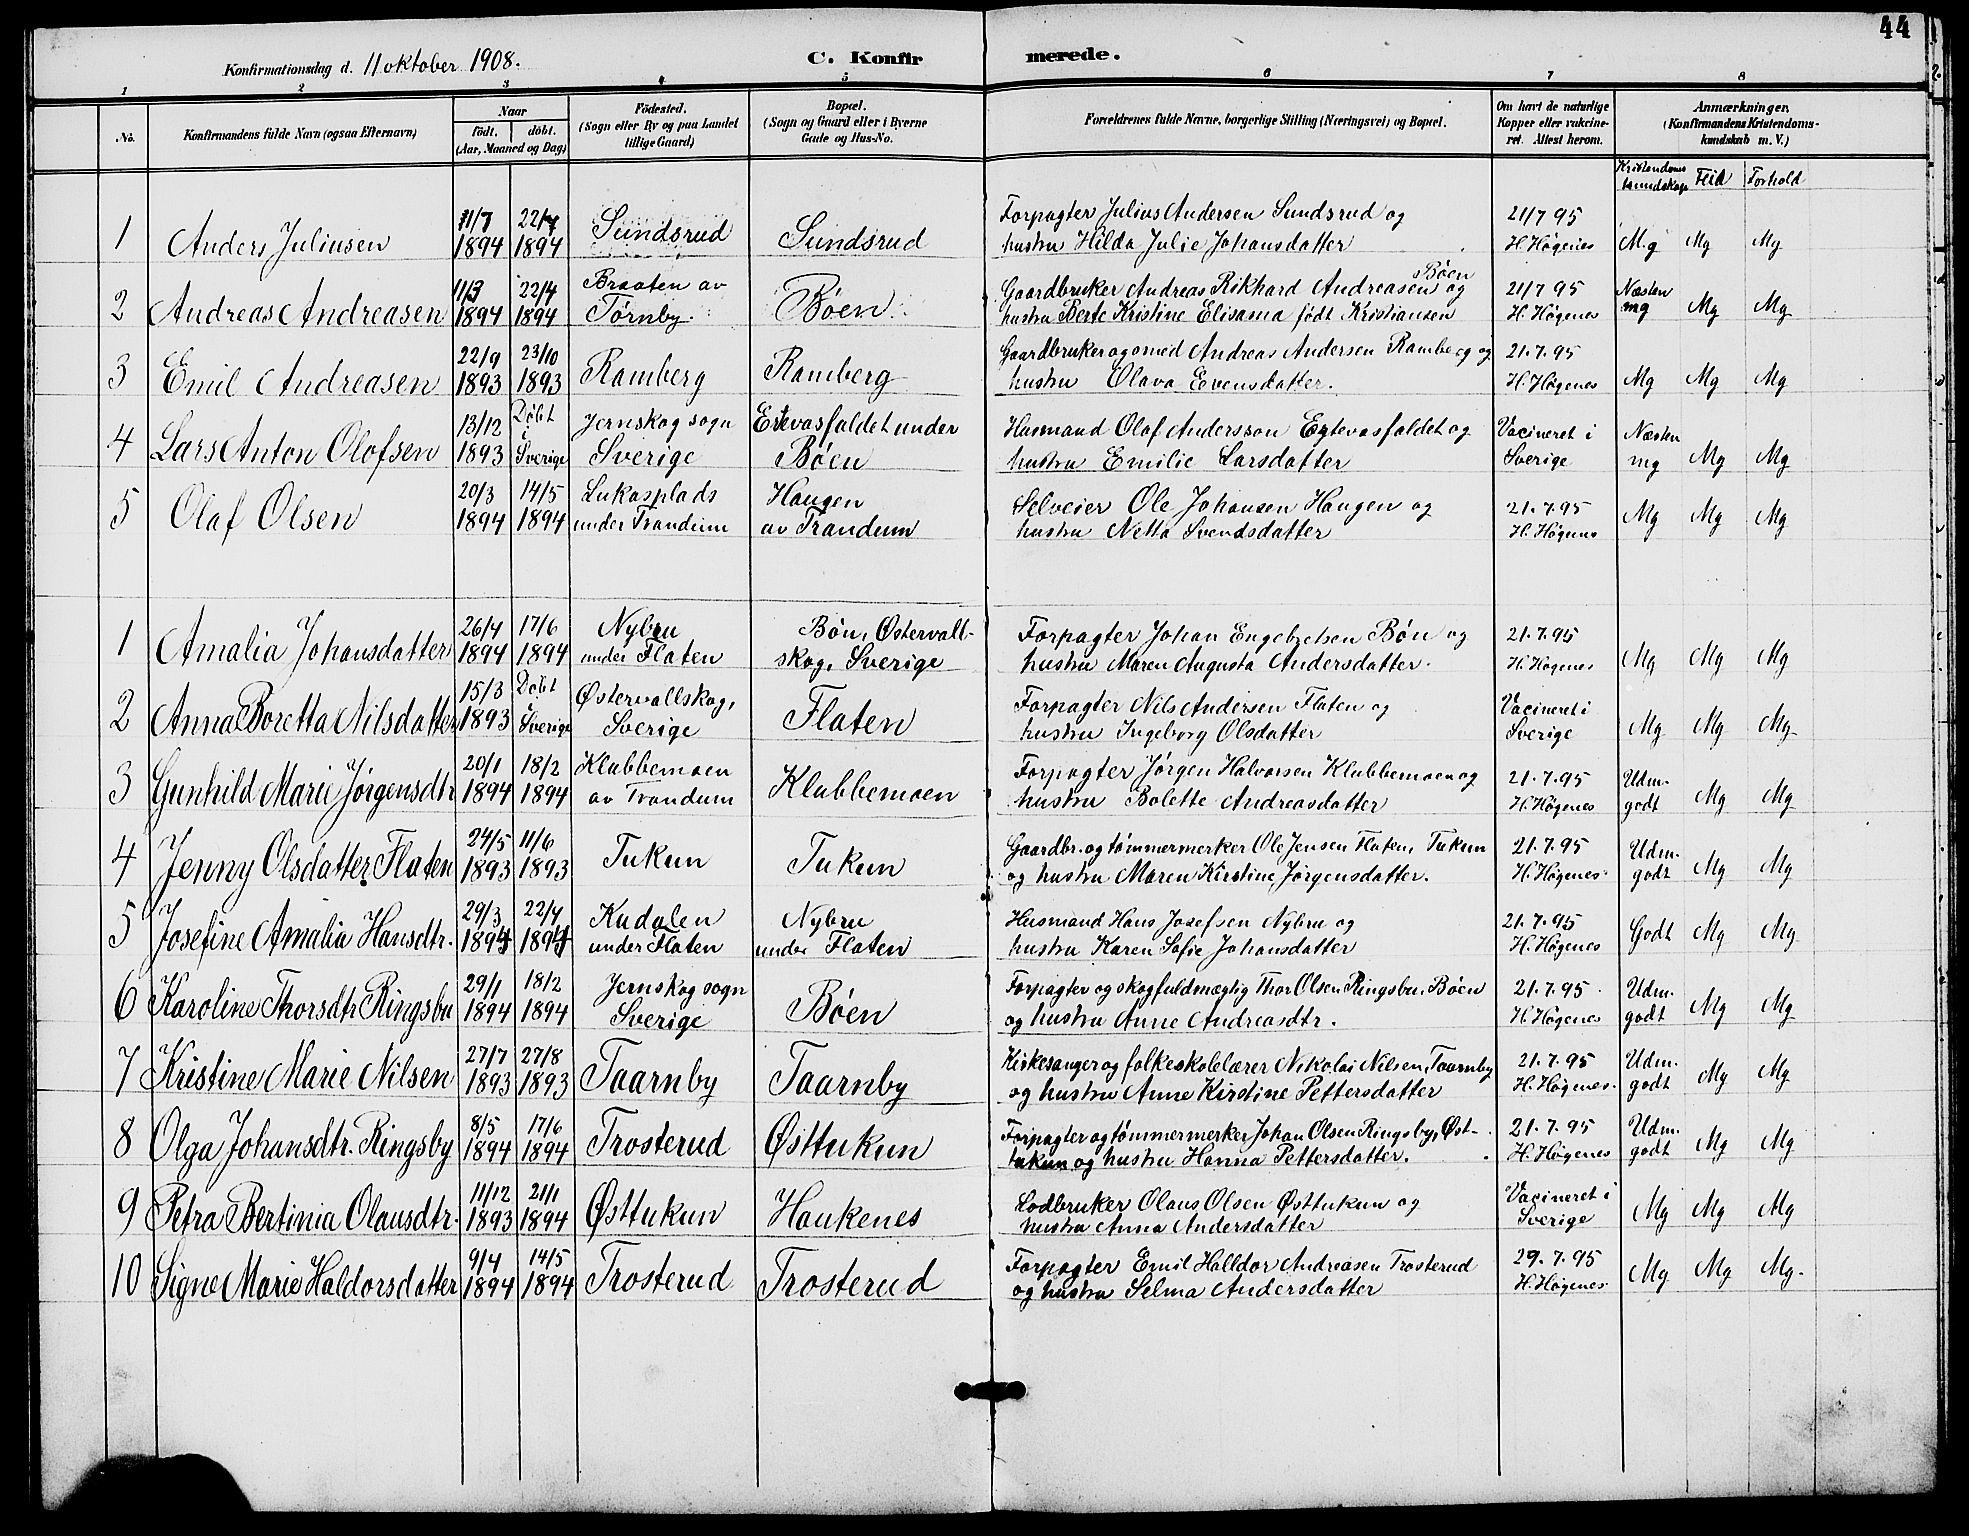 44
Konfirmationsdag d. 11 oktober 1908.
C. Konfirmerede.
1 2 3 4 5 6 7 8
No.
Konfirmandens fulde Navn (ogsaa Efternavn)
Naar
födt. döbt.
(Aar, Maaned og Dag)
Födested.
(Sogn eller By og paa Landet
tillige Gaard)
Bopæl.
(Sogn og Gaard eller i Byerne
Gade og Hus-No.
Forældrenes fulde Navne, borgerlige Stilling (Næringsvei) og Bopæl.
Om havt de naturlige
Kopper eller vakcine-
ret. Attest herom.
Anmærkninger,
(Konfirmandens Kristendoms-
kundskab m. V.)
Kristendoms
kundskap Flid Forhold
1 Anders Juliusen 11/7 1894 22/7 1894 Sundsrud Sundsrud
Forpagter Julius Andersen Sundsrud og
hustru Hilda Julie Johansdatter
21/7 95
H. Høgenes Mg Mg Mg
2 Andreas Andreasen 11/3 1894 22/4 1894
Braaten av
Tørnby. Bøen
Gaardbruker Andreas Rikhard Andreasen Bøen og
hustru Berte Kristine Elisama født Kristiansen
21/7 95
H. Høgenes Næsten mg Mg Mg
3 Emil Andreasen 22/9 1893 23/10 1893 Ramberg Ramberg
Gaardbruker og smed Andreas Andersen Ramberg og
hustru Olava Evensdatter.
21.7.95
H. Høgenes Mg Mg Mg
4 Lars Anton Olofsen 13/12 1893 Døbt i Sverige
Jernskog sogn
Sverige
Ertevasfaldet under
Bøen
Husmand Olof Andersson Ertevasfaldet og
hustru Emilie Larsdatter
Vacineret i
Sverige Næsten mg Mg Mg
5 Olaf Olsen 20/3 1894 14/5 1894
Lukasplads
under Trandum
Haugen
av Trandum
Selveier Ole Johansen Haugen og
hustru Netta Svendsdatter
21.7.95
H. Høgenes Mg Mg Mg
1 Amalia Johansdatter 26/4 1894 17/6 1894
Nybru
under Flaten
Bøn, Østervall-
skog, Sverige
Forpagter Johan Engebretsen Bøn og
hustru Maren Augusta Andersdatter.
21.7.95
H. Høgenes Mg Mg Mg
2 Anna Boretta Nilsdatter 15/3 1893 Døbt i Sverige
Østervallskog,
Sverige Flaten
Forpagter Nils Andersen Flaten og
hustru Ingeborg Olsdatter
Vacineret i
Sverige Mg Mg Mg
3 Gunhild Marie Jørgensdtr 20/1 1894 18/2 1894
Klubbemoen
av Trandum Klubbemoen
Forpagter Jørgen Halvorsen Klubbemoen og
hustru Bolette Andreasdatter
21.7.95
H. Høgenes Udm. godt Mg Mg
4 Jenny Olsdatter Flaten 24/5 1893 11/6 1893 Tukun Tukun
Gaardbr. og tømmermerker Ole Jensen Flaten, Tukun
og hustru Maren Kirstine Jørgensdatter.
21.7.95
H. Høgenes Udm. godt Mg Mg
5 Josefine Amalia Hansdtr. 29/3 1894 22/4 1894
Kudalen
under Flaten
Nybru
under Flaten
Husmand Hans Josefsen Nybru og
hustru Karen Sofie Johansdatter
21.7.95
H. Høgenes Godt Mg Mg
6 Karoline Thorsdtr Ringsbu 29/1 1894 18/2 1894
Jernskog sogn
Sverige Bøen
Forpagter og skogfuldmægtig Thor Olsen Ringsbu, Bøen
og hustru Anne Andreasdtr.
21.7.95
H. Høgenes Udm. godt Mg Mg
7 Kristine Marie Nilsen 27/7 1893 27/8 1893 Taarnby Taarnby
Kirkesanger og folkeskolelærer Nikolai Nilsen, Taarnby
og hustru Anne Kirstine Pettersdatter
21.7.95
H. Høgenes Udm. godt Mg Mg
8 Olga Johansdtr. Ringsby 8/5 1894 17/6 1894 Trosterud Østtukun
Forpagter og tømmermerker Johan Olsen Ringsby, Øst-
tukun og hustru Hanna Pettersdatter.
21.7.95
H. Høgenes Udm. godt Mg Mg
9 Petra Bertinia Olausdtr. 11/12 1893 21/1 1894 Østtukun Haukenes
Lodbruker Olaus Olsen Østtukun og
hustru Anna Andersdatter
Vacineret i
Sverige Mg Mg Mg
10 Signe Marie Haldorsdatter 9/4 1894 14/5 1894 Trosterud Trosterud
Forpagter Emil Halldor Andreasen Trosterud
og hustru Selma Andersdatter
29.7.95
H. Høgenes Mg Mg Mg